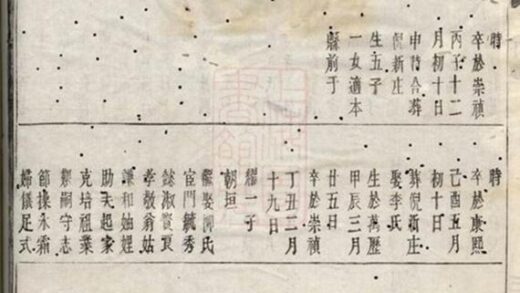 時
卒於崇禎
丙子十二
月初十日
申合葬
倪新庄
生五子
一女適本
縣前于
時
卒於康熙
己酉五月
初十日
葬倪新庄
娶李氏
生於萬歷
甲辰三月
廿五日
卒於崇禎
丁丑二月
十九日
耀一子
朝垣
繼娶柳氏
宦門毓秀
懿淑賢良
孝敬翁姑
謙和妯娌
助夫起家
克培祖業
嗣守志
節操永霜
婦儀足式